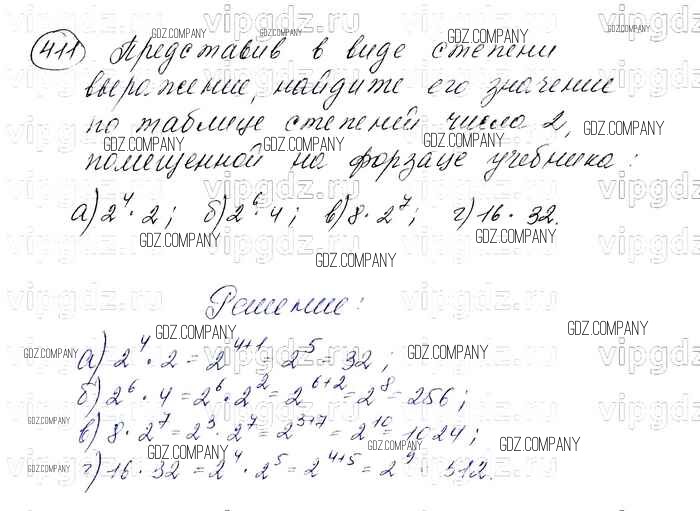 411 Представив в виде степени
выражение, найдите его значение
по таблице степеней числа 2,
помещенной на форзаце учебника:
а) 2⁴ · 2; б) 2⁶ · 4; в) 8 · 2⁷; г) 16 · 32.
Решение:
а) 2⁴ · 2 = 2⁴⁺¹ = 2⁵ = 32;
б) 2⁶ · 4 = 2⁶ · 2² = 2⁶⁺² = 2⁸ = 256;
в) 8 · 2⁷ = 2³ · 2⁷ = 2³⁺⁷ = 2¹⁰ = 1024;
г) 16 · 32 = 2⁴ · 2⁵ = 2⁴⁺⁵ = 2⁹ = 512.
vipgdz.ru
GDZ.COMPANY